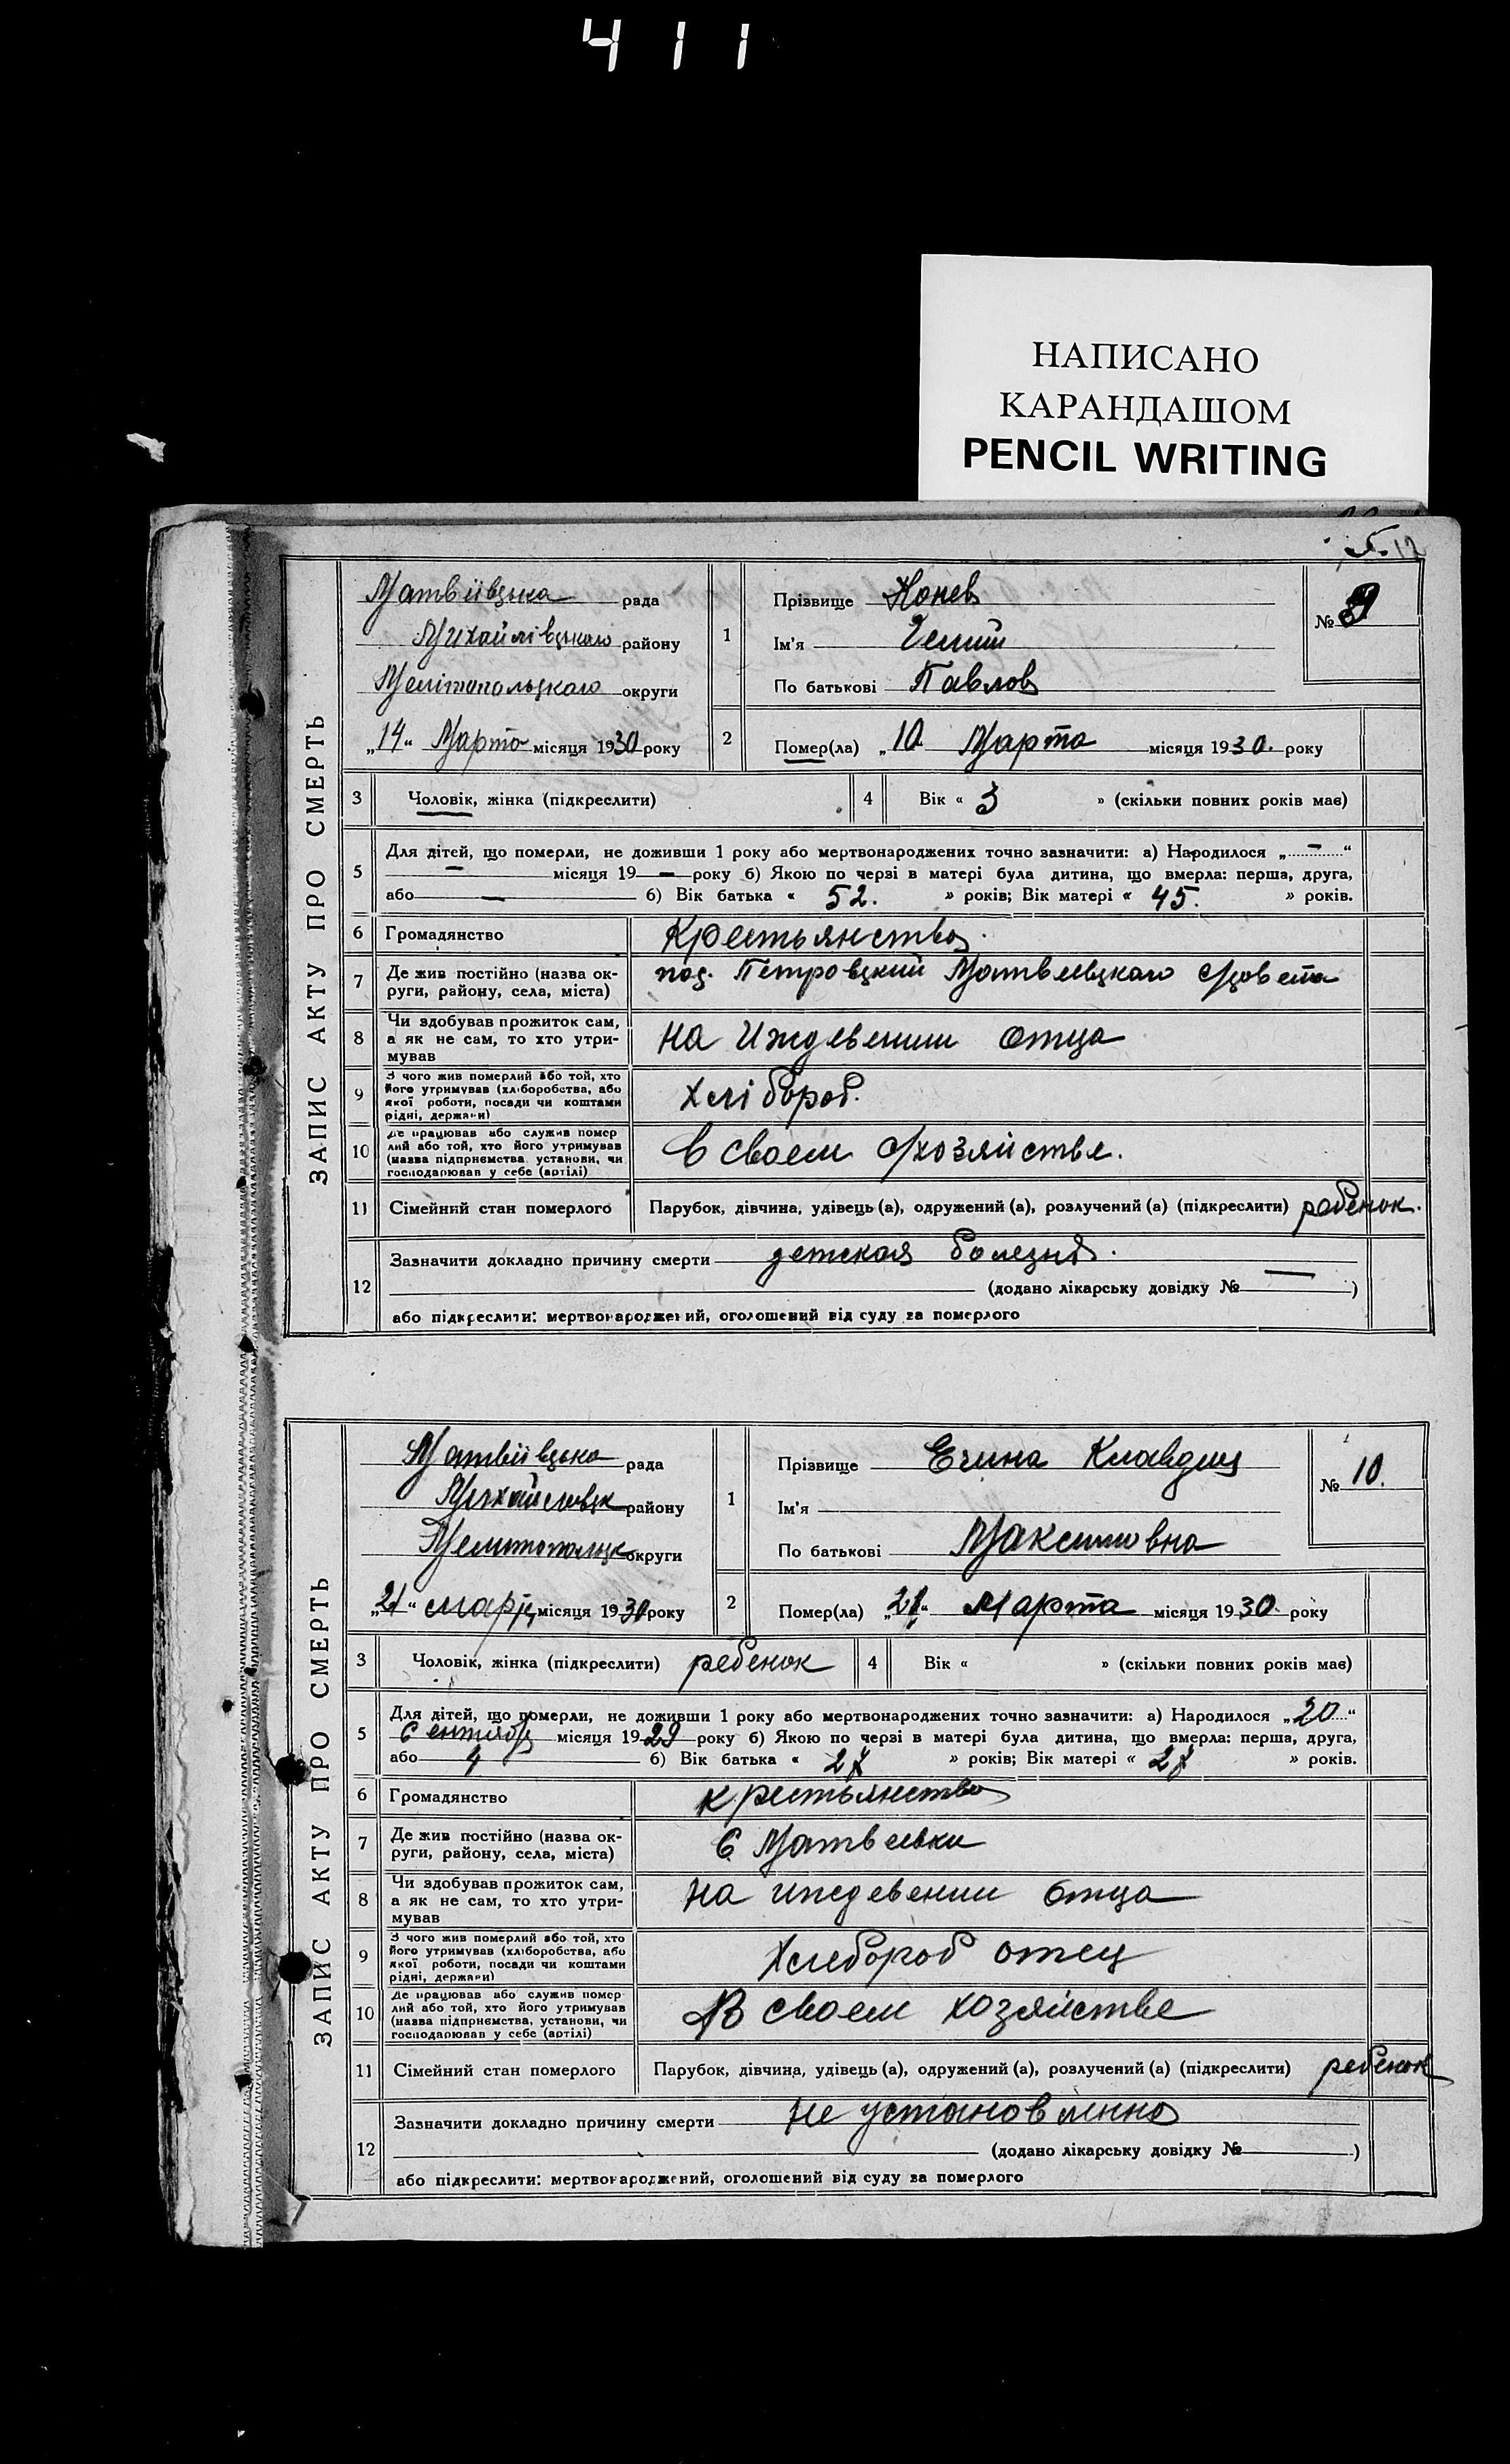 411
НАПИСАНО
КАРАНДАШОМ
PENCIL WRITING
12
ЗАПИС АКТУ ПРО СМЕРТЬ
Матвіівцька рада
Михайлівцького району
Мелітопольцкаго округи
„14“ Марта місяця 1930 року
1
Прізвище Конев
Ім'я
По батькові Павлов
№ 9
2
Помер(ла) „10 Марта місяця 1930. року
3 Чоловік, жінка (підкреслити)
4 Вік « 3 » (скільки повних років має)
5
Для дітей, що померли, не доживши 1 року або мертвонароджених точно зазначити: а) Народилося „ — “
— місяця 19 — року б) Якою по черзі в матері була дитина, що вмерла: перша, друга,
або — б) Вік батька « 52. » років; Вік матері « 45. » років.
6 Громадянство Крестьянство.
7 Де жив постійно (назва ок-
руги, району, села, міста)
пос. Петровцкий Матвеевцкаго с/совета
8 Чи здобував прожиток сам,
а як не сам, то хто утри-
мував
На Иждевении отца
9 З чого жив померлий або той, хто
його утримував (хліборобства, або
якої роботи, посади чи коштами
рідні, держави)
Хлібороб.
10 Де працював або служив помер
лий або той, хто його утримував
(назва підприємства, установи, чи
господарював у себе (артілі)
В своем с/хозяйстве.
11 Сімейний стан померлого
Парубок, дівчина, удівець (а), одружений (а), розлучений (а) (підкреслити) ребенок.
12
Зазначити докладно причину смерти детская болезнь.
(додано лікарську довідку № — )
або підкреслити: мертвонароджений, оголошений від суду за померлого
ЗАПИС АКТУ ПРО СМЕРТЬ
Матвіівцько рада
Михайловцк району
Мелитопольцк округи
„21“ марта місяця 1930 року
1
Прізвище Ечина Клавдия
Ім'я
По батькові Максимовна
№ 10.
2
Помер(ла) „21“ Марта місяця 1930 року
3 Чоловік, жінка (підкреслити) ребенок
4 Вік « » (скільки повних років має)
5
Для дітей, що померли, не доживши 1 року або мертвонароджених точно зазначити: а) Народилося „20“
Сентябр місяця 1929 року б) Якою по черзі в матері була дитина, що вмерла: перша, друга,
або 4 б) Вік батька « 27 » років; Вік матері « 27 » років.
6 Громадянство крестьянство
7 Де жив постійно (назва ок-
руги, району, села, міста)
С Матвеевки
8 Чи здобував прожиток сам,
а як не сам, то хто утри-
мував
На иждевении отца
9 З чого жив померлий або той, хто
його утримував (хліборобства, або
якої роботи, посади чи коштами
рідні, держави)
Хлебороб отец
10 Де працював або служив помер
лий або той, хто його утримував
(назва підприємства, установи, чи
господарював у себе (артілі)
В своем хозяйстве
11 Сімейний стан померлого
Парубок, дівчина, удівець (а), одружений (а), розлучений (а) (підкреслити) ребенок
12
Зазначити докладно причину смерти не установленно
(додано лікарську довідку № )
або підкреслити: мертвонароджений, оголошений від суду за померлого